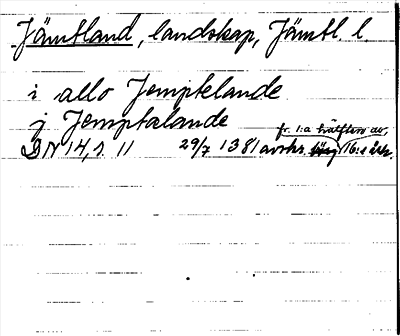 Jämtland, landskap, Jämtl. l.
i allo Jemptelande
j Jemptalande
fr. 1:a hälften av
DN 14, s. 11 29/7 1381 avskr. 16:e årh.